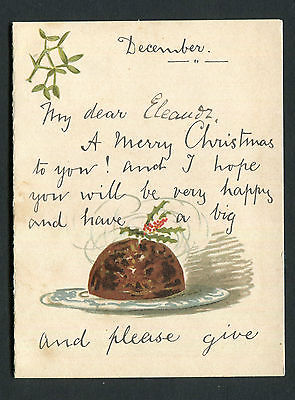 December.
My dear Eleanor.
A Merry Christmas
to you! and I hope
you will be very happy
and have a big
and please give